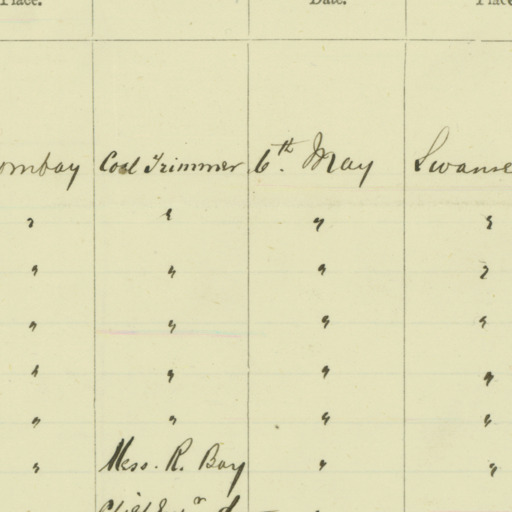 Place. Date. Place
ombay Coal Trimmer 6th. May Swanse
" " " "
" " " "
" " " "
" " " "
" " " "
" Mess. R. Boy " "